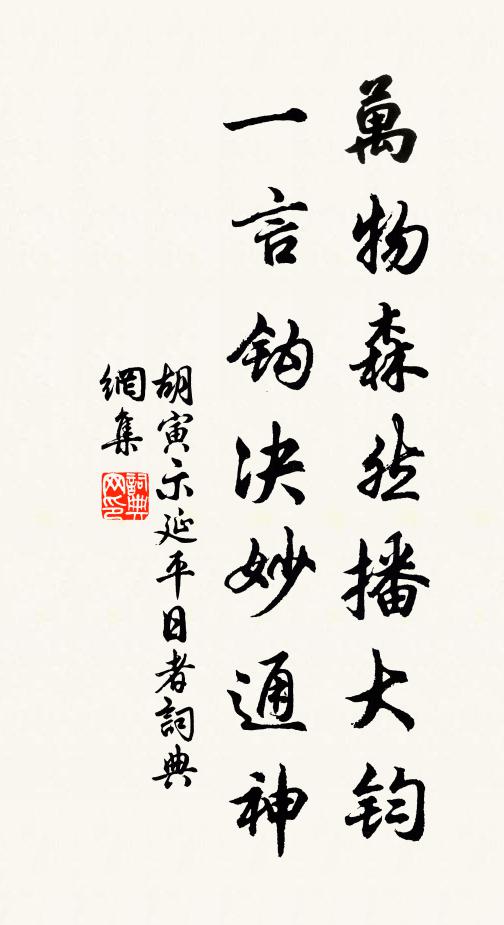 萬物森然播大鈞
一言鈎决妙通神
胡寅示延平日者詞典
網集
詞典
网印